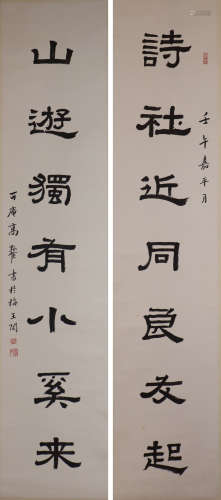 詩社近同良友起
壬午嘉平月
山遊獨有小奚来
可庵高書於梅王閣